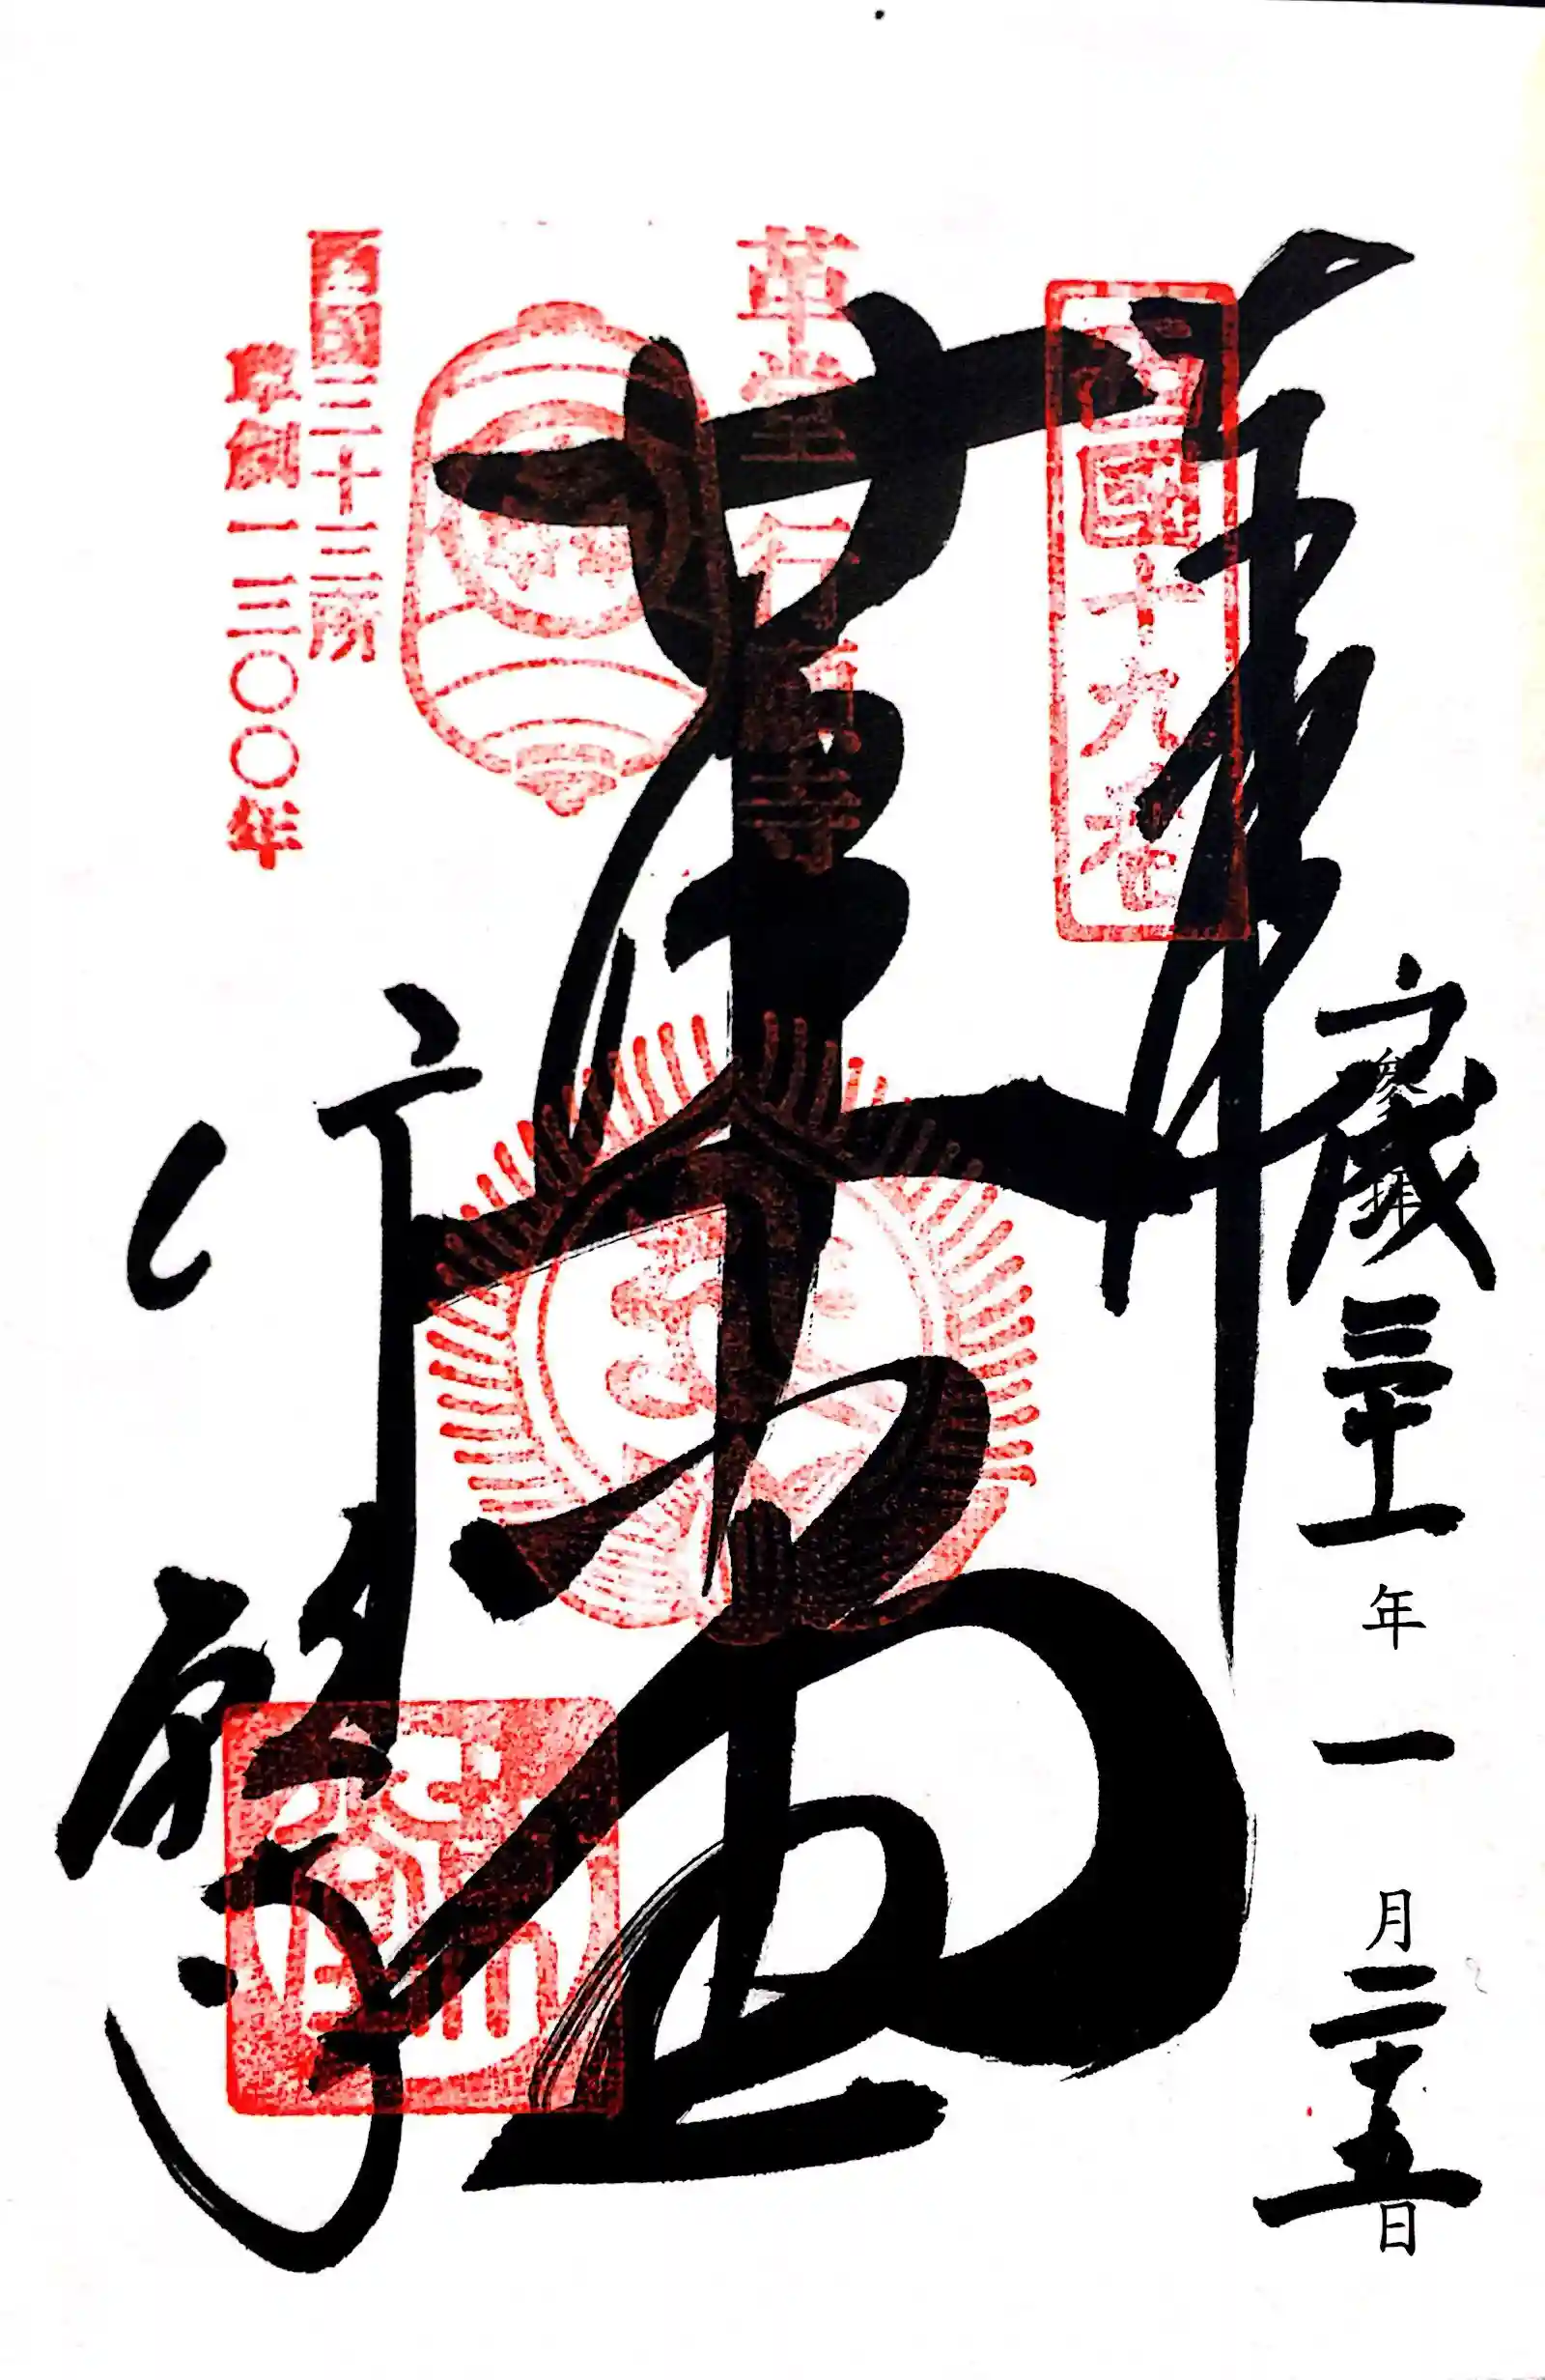 奉拝
歳三十一年一月二十五日
参拝
西國十九番
革堂
革堂行願寺
西國三十三所
草創一三〇〇年
行願寺